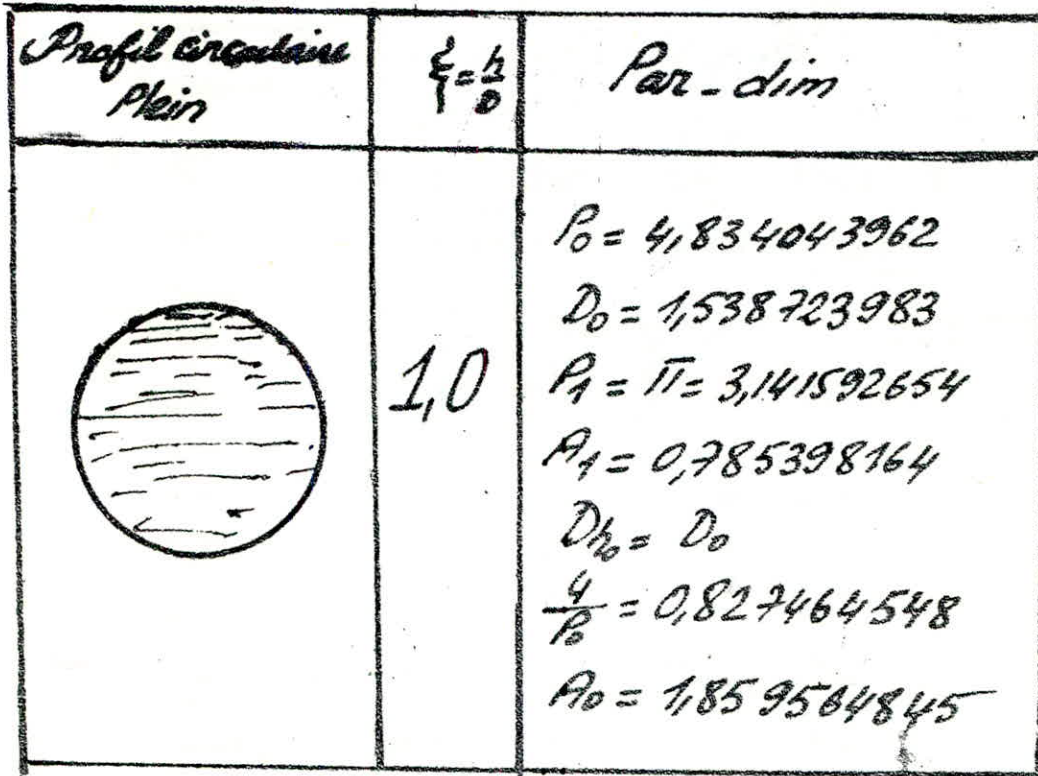 Profil circulaire
Plein
ξ = h/D
Par-dim
1,0
P₀ = 4,834043962
D₀ = 1,538723983
P₁ = π = 3,141592654
A₁ = 0,785398164
Dh₀ = D₀
4/P₀ = 0,8274645​48
A₀ = 1,859564845